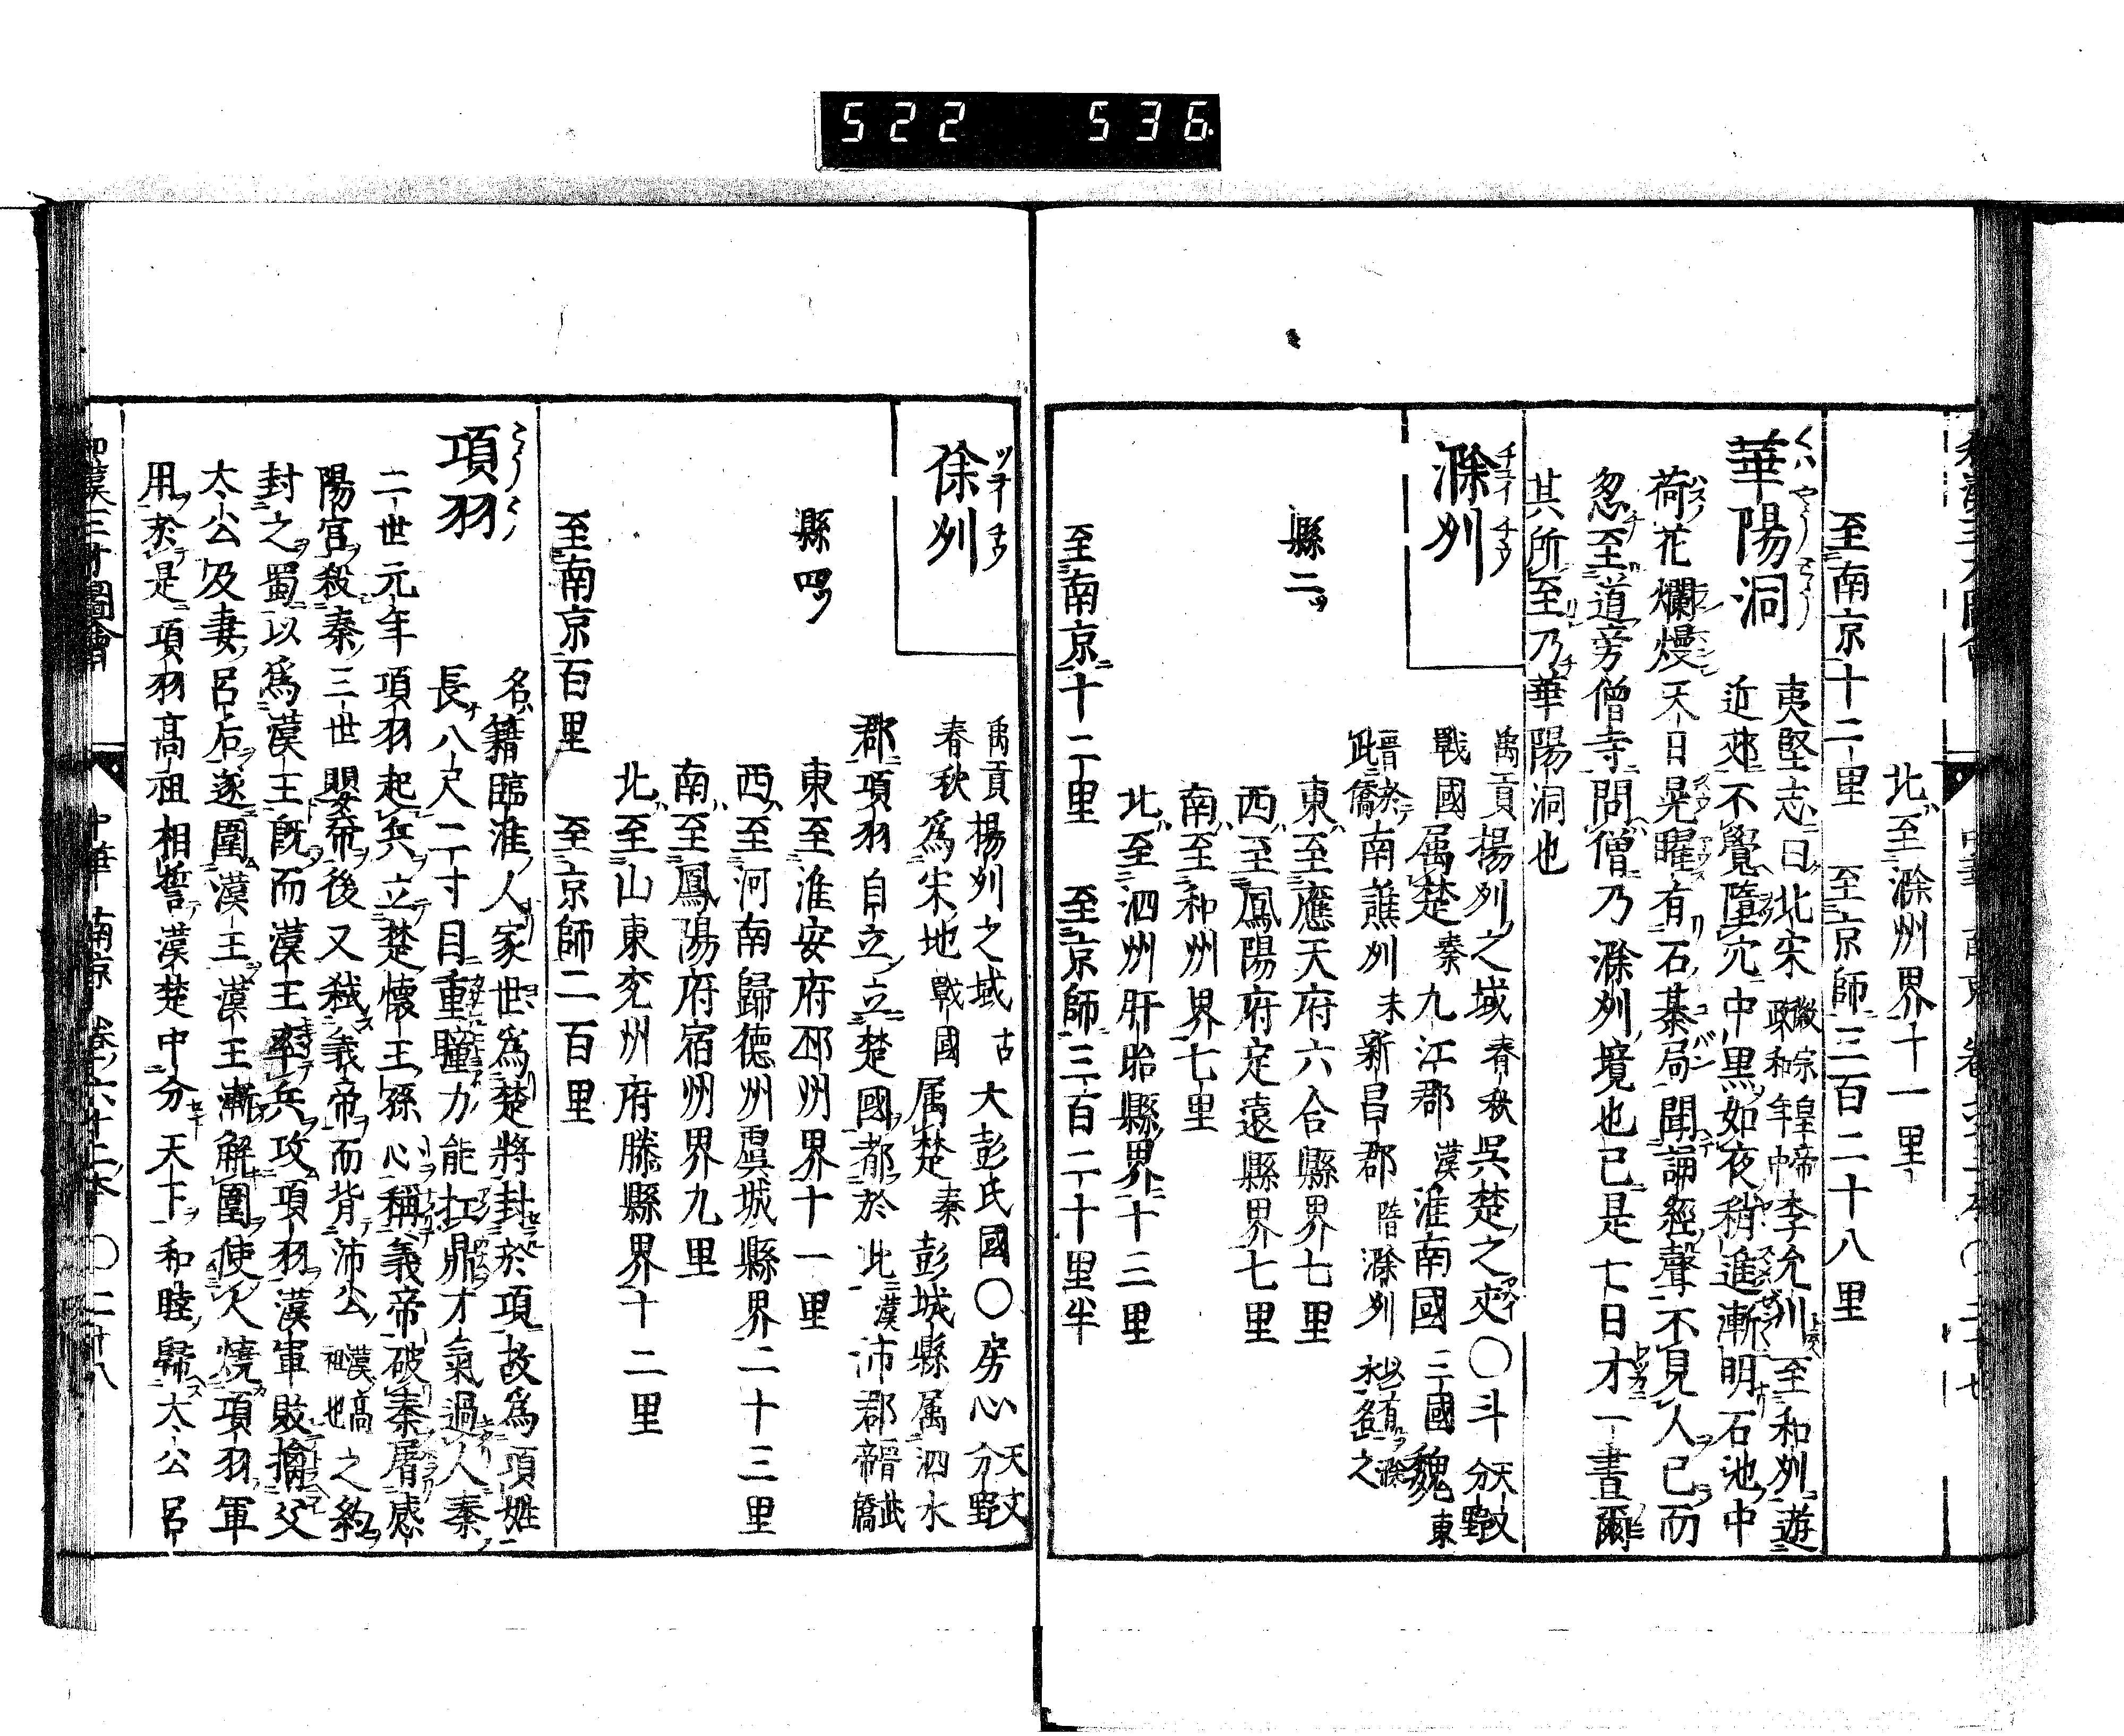 522 536
北至滁州界十一里
至南京十二里 至京師三百二十八里
華陽洞
夷堅志曰北宋徽宗皇帝政和年中李允刕至和刕遊
近郊不覺墮穴中黒如夜稍進漸明石池中
荷花爛熳天日晃曜有石棊局聞誦經聲不見人已而
忽至道旁僧寺問僧乃滁刕境也已是七日才一晝爾
其所至乃華陽洞也
滁刕
禹貢揚刕之域春秋吳楚之交〇斗天文分野
戰國属楚秦九江郡漢淮南國三國魏東
晋於此僑南譙刕末新昌郡隋滁刕
縣二
東至應天府六合縣界七里
西至鳳陽府定遠縣界七里
南至和州界七里
北至泗州盱眙縣界十三里
至南京十二里 至京師三百二十里半
徐刕
禹貢揚刕之域古大彭氏國〇房心天文分野
春秋為宋地戰國属楚秦彭城縣属泗水
郡項羽自立立楚國都於此漢沛郡
縣四
東至淮安府邳州界十一里
西至河南歸德州虞城縣界二十三里
南至鳳陽府宿州界九里
北至山東兖州府滕縣界十二里
至南京百里 至京師二百里
項羽
名籍臨淮人家世為楚將封於項故為項姓
長八尺二寸目重瞳力能扛鼎才氣過人秦
二世元年項羽起兵立楚懷王孫心稱義帝破秦屠咸
陽宮殺秦三世嬰帝後又弑義帝而背沛公漢高祖也之約
封之蜀以為漢王既而漢王率兵攻項羽漢軍敗擒父
太公及妻呂后遂圍漢王漢王漸解圍使人燒項羽軍
用於是項羽高祖相誓漢楚中分天下和睦歸太公呂
和漢三才圖會 中華 南京 卷六十二本 〇二十八